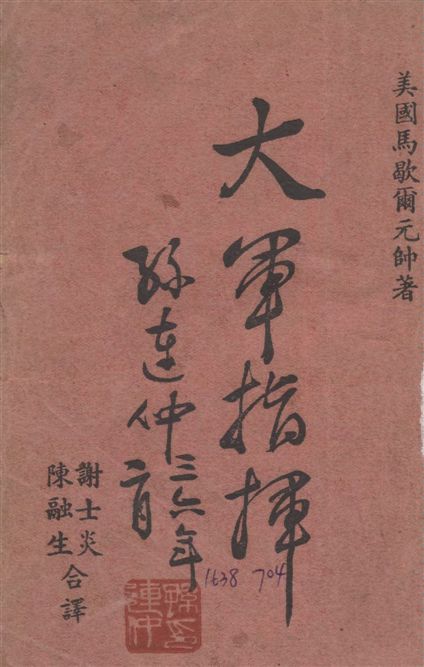 美國馬歇爾元帥著
大軍指揮
孫連仲
三六年
二月
謝士炎
陳融生
合譯
1638 704
孫連仲印